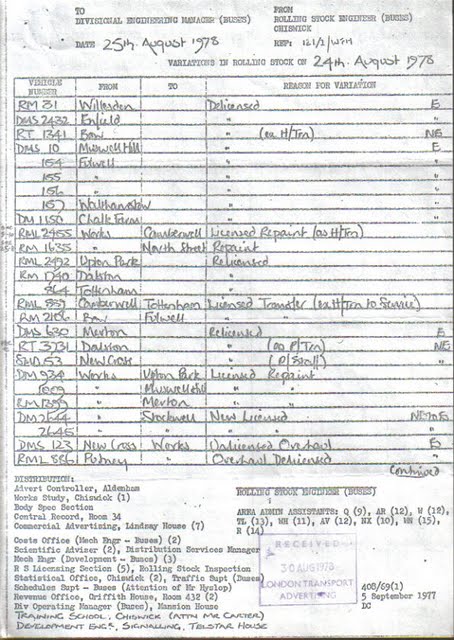 TO FROM
DIVISIONAL ENGINEERING MANAGER (BUSES) ROLLING STOCK ENGINEER (BUSES)
CHISWICK
DATE 25th August 1978 REF: 121/1/WFH
VARIATIONS IN ROLLING STOCK ON 24th August 1978
VEHICLE NUMBER FROM TO REASON FOR VARIATION
RM 31 Willesden Delicensed E
DMS 2432 Enfield " "
RT 1341 Bow " (ex H/Trn) NE
DMS 10 Muswell Hill " E
154 Fulwell " "
155 " " "
156 " " "
157 Walthamstow " "
DM 1150 Chalk Farm " "
RML 2455 Works Camberwell Licensed Repaint (as H/Trn)
RM 1635 " North Street Repaint
RML 2492 Upton Park Relicensed
RM 1740 Dalston "
864 Tottenham "
RML 889 Camberwell Tottenham Licensed Transfer (ex H/Trn to Service)
RM 2106 Bow Fulwell "
DMS 630 Merton Relicensed E
RT 3731 Dalston " (as P/Trn) NE
SMD 53 New Cross " "
DM 934 Works Upton Park Licensed Repaint
1809 " Muswell Hill "
RM 1399 " Merton "
DM 2644 Stockwell New Licensed
2645 " " "
DMS 123 New Cross Works Unlicensed Overhaul E
RML 886 Putney " Overhaul Delicensed
Continued
DISTRIBUTION:
Advert Controller, Aldenham
Works Study, Chiswick (1)
Body Spec Section
Central Record, Room 34
Commercial Advertising, Lindsay House (7)
Costs Office (Mech Engr - Buses) (2)
Scientific Adviser (2), Distribution Services Manager
Mech Engr (Development - Buses) (3)
R S Licensing Section (5), Rolling Stock Inspection
Statistical Office, Chiswick (2), Traffic Supt (Buses)
Schedules Supt - Buses (Attention of Mr Hyslop)
Revenue Office, Griffith House, Room 412 (2)
Div Operating Manager (Buses), Mansion House
TRAINING SCHOOL, CHISWICK (ATTN MR CARTER)
DEVELOPMENT ENGR, SIGNALLING, TELSTAR HOUSE
ROLLING STOCK ENGINEER (BUSES)
AREA ADMIN ASSISTANTS: Q (9), AR (12), W (12),
TL (13), WH (11), AV (12), NX (10), HN (15),
R (14)
RECEIVED
30 AUG 1978
LONDON TRANSPORT
ADVERTISING
408/69(1)
5 September 1977
DC